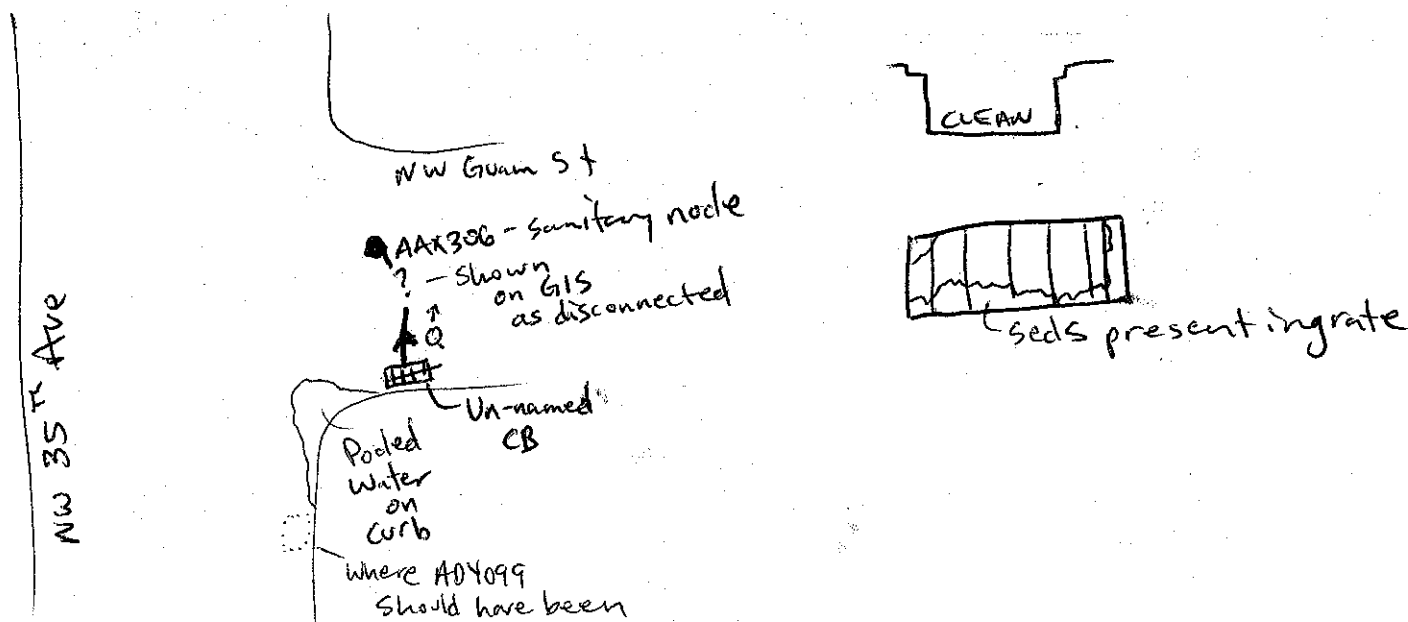 NW 35th Ave
NW Guam St
AAX306 - sanitary node
? - shown
on GIS
as disconnected
Q
Un-named
CB
Pooled
Water
on
Curb
where ADY099
Should have been
CLEAN
seds present in grate